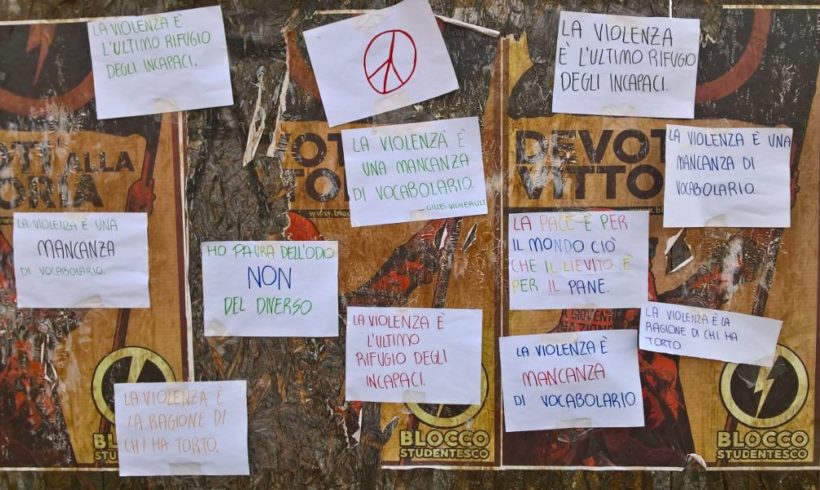 LA VIOLENZA È
L'ULTIMO RIFUGIO
DEGLI INCAPACI.
LA VIOLENZA
È L'ULTIMO RIFUGIO
DEGLI INCAPACI.
LA VIOLENZA È
UNA MANCANZA
DI VOCABOLARIO.
- GILLES VIGNEAULT
LA VIOLENZA È UNA
MANCANZA DI
VOCABOLARIO.
LA VIOLENZA È UNA
MANCANZA
DI VOCABOLARIO.
HO PAURA DELL'ODIO
NON
DEL DIVERSO
LA PACE È PER
IL MONDO CIÒ
CHE IL LIEVITO È
PER IL PANE.
LA VIOLENZA È
L'ULTIMO
RIFUGIO DEGLI
INCAPACI.
LA VIOLENZA È LA
RAGIONE DI CHI HA
TORTO.
LA VIOLENZA È
MANCANZA
DI VOCABOLARIO
LA VIOLENZA È
LA RAGIONE DI
CHI HA TORTO.
OTI ALLA
ORIA
VOT
TO
DEVOT
VITTO
BLOCCO
STUDENTESCO
BLOCCO
STUDENTESCO